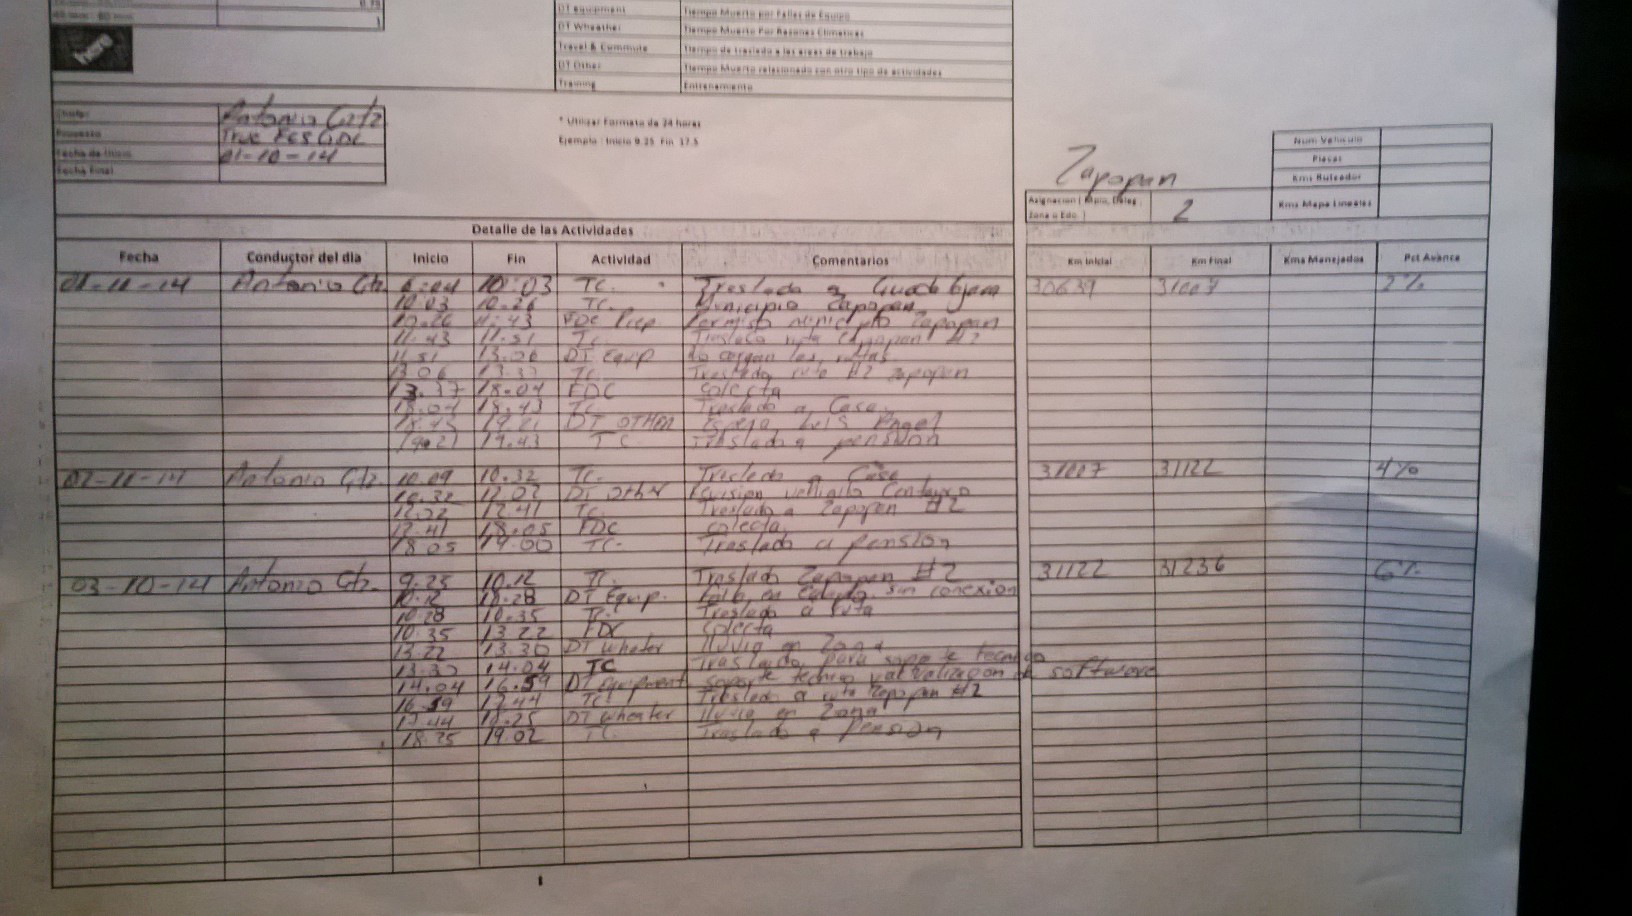 0.75
1
DT equipment Tiempo Muerto por Fallas de Equipo
DT Wheather Tiempo Muerto Por Razones Climaticas
Travel & Commute Tiempo de traslado a las areas de trabajo
DT Other Tiempo Muerto relacionado con otro tipo de actividades
Training Entrenamiento
here
Antonio Gtz
True FCS GDL
Fecha de Inicio 01-10-14
Fecha Final
* Utilizar Formato de 24 horas
Ejemplo: Inicio 9.25 Fin 17.5
Num Vehiculo
Placas
Kms Ruteador
Kms Mapa Lineales
Zapopan
Asignacion ( Mpio, Deleg, Zona o Edo. ) 2
Detalle de las Actividades
Fecha Conductor del dia Inicio Fin Actividad Comentarios Km Inicial Km Final Kms Manejados Pct Avance
01-11-14 Antonio Gtz 6:04 10:03 TC. Traslado a Guadalajara 30639 31007 2%
10.03 10.26 TC. Municipio Zapopan
10.26 11.43 FDC Prep. Permiso municipio Zapopan
11.43 11.51 TC Traslado ruta Zapopan #2
11.51 13.06 DT Equip no cargan las rutas
13.06 13.37 TC. Traslado ruta #2 Zapopan
13.37 18.04 FDC colecta
18.04 18.43 TC Traslado a Casa.
18.43 19.21 DT OTHER Espera Luis Angel
19.21 19.43 TC Traslado a pension
02-11-14 Antonio Gtz. 10.09 10.32 TC. Traslado a Casa 31007 31122 4%
10.32 12.02 DT Other Revision vehiculo
12.02 12.41 TC. Traslado a Zapopan #2
12.41 18.05 FDC colecta
18.05 19.00 TC. Traslado a pension
03-10-14 Antonio Gtz. 9.25 10.12 TC. Traslado Zapopan #2 31122 31236 6%
10.12 10.28 DT Equip. Falla en sin conexion
10.28 10.35 TC. Traslado a ruta
10.35 13.22 FDC colecta
13.22 13.30 DT Wheter lluvia en Zona
13.30 14.04 TC Traslado para soporte tecnico
14.04 16.59 DT Equipment soporte tecnico y actualizacion de software
16.59 17.44 TC Traslado a ruta Zapopan #2
17.44 18.25 DT Wheater lluvia en Zona
18.25 19.02 TC. Traslado a pension